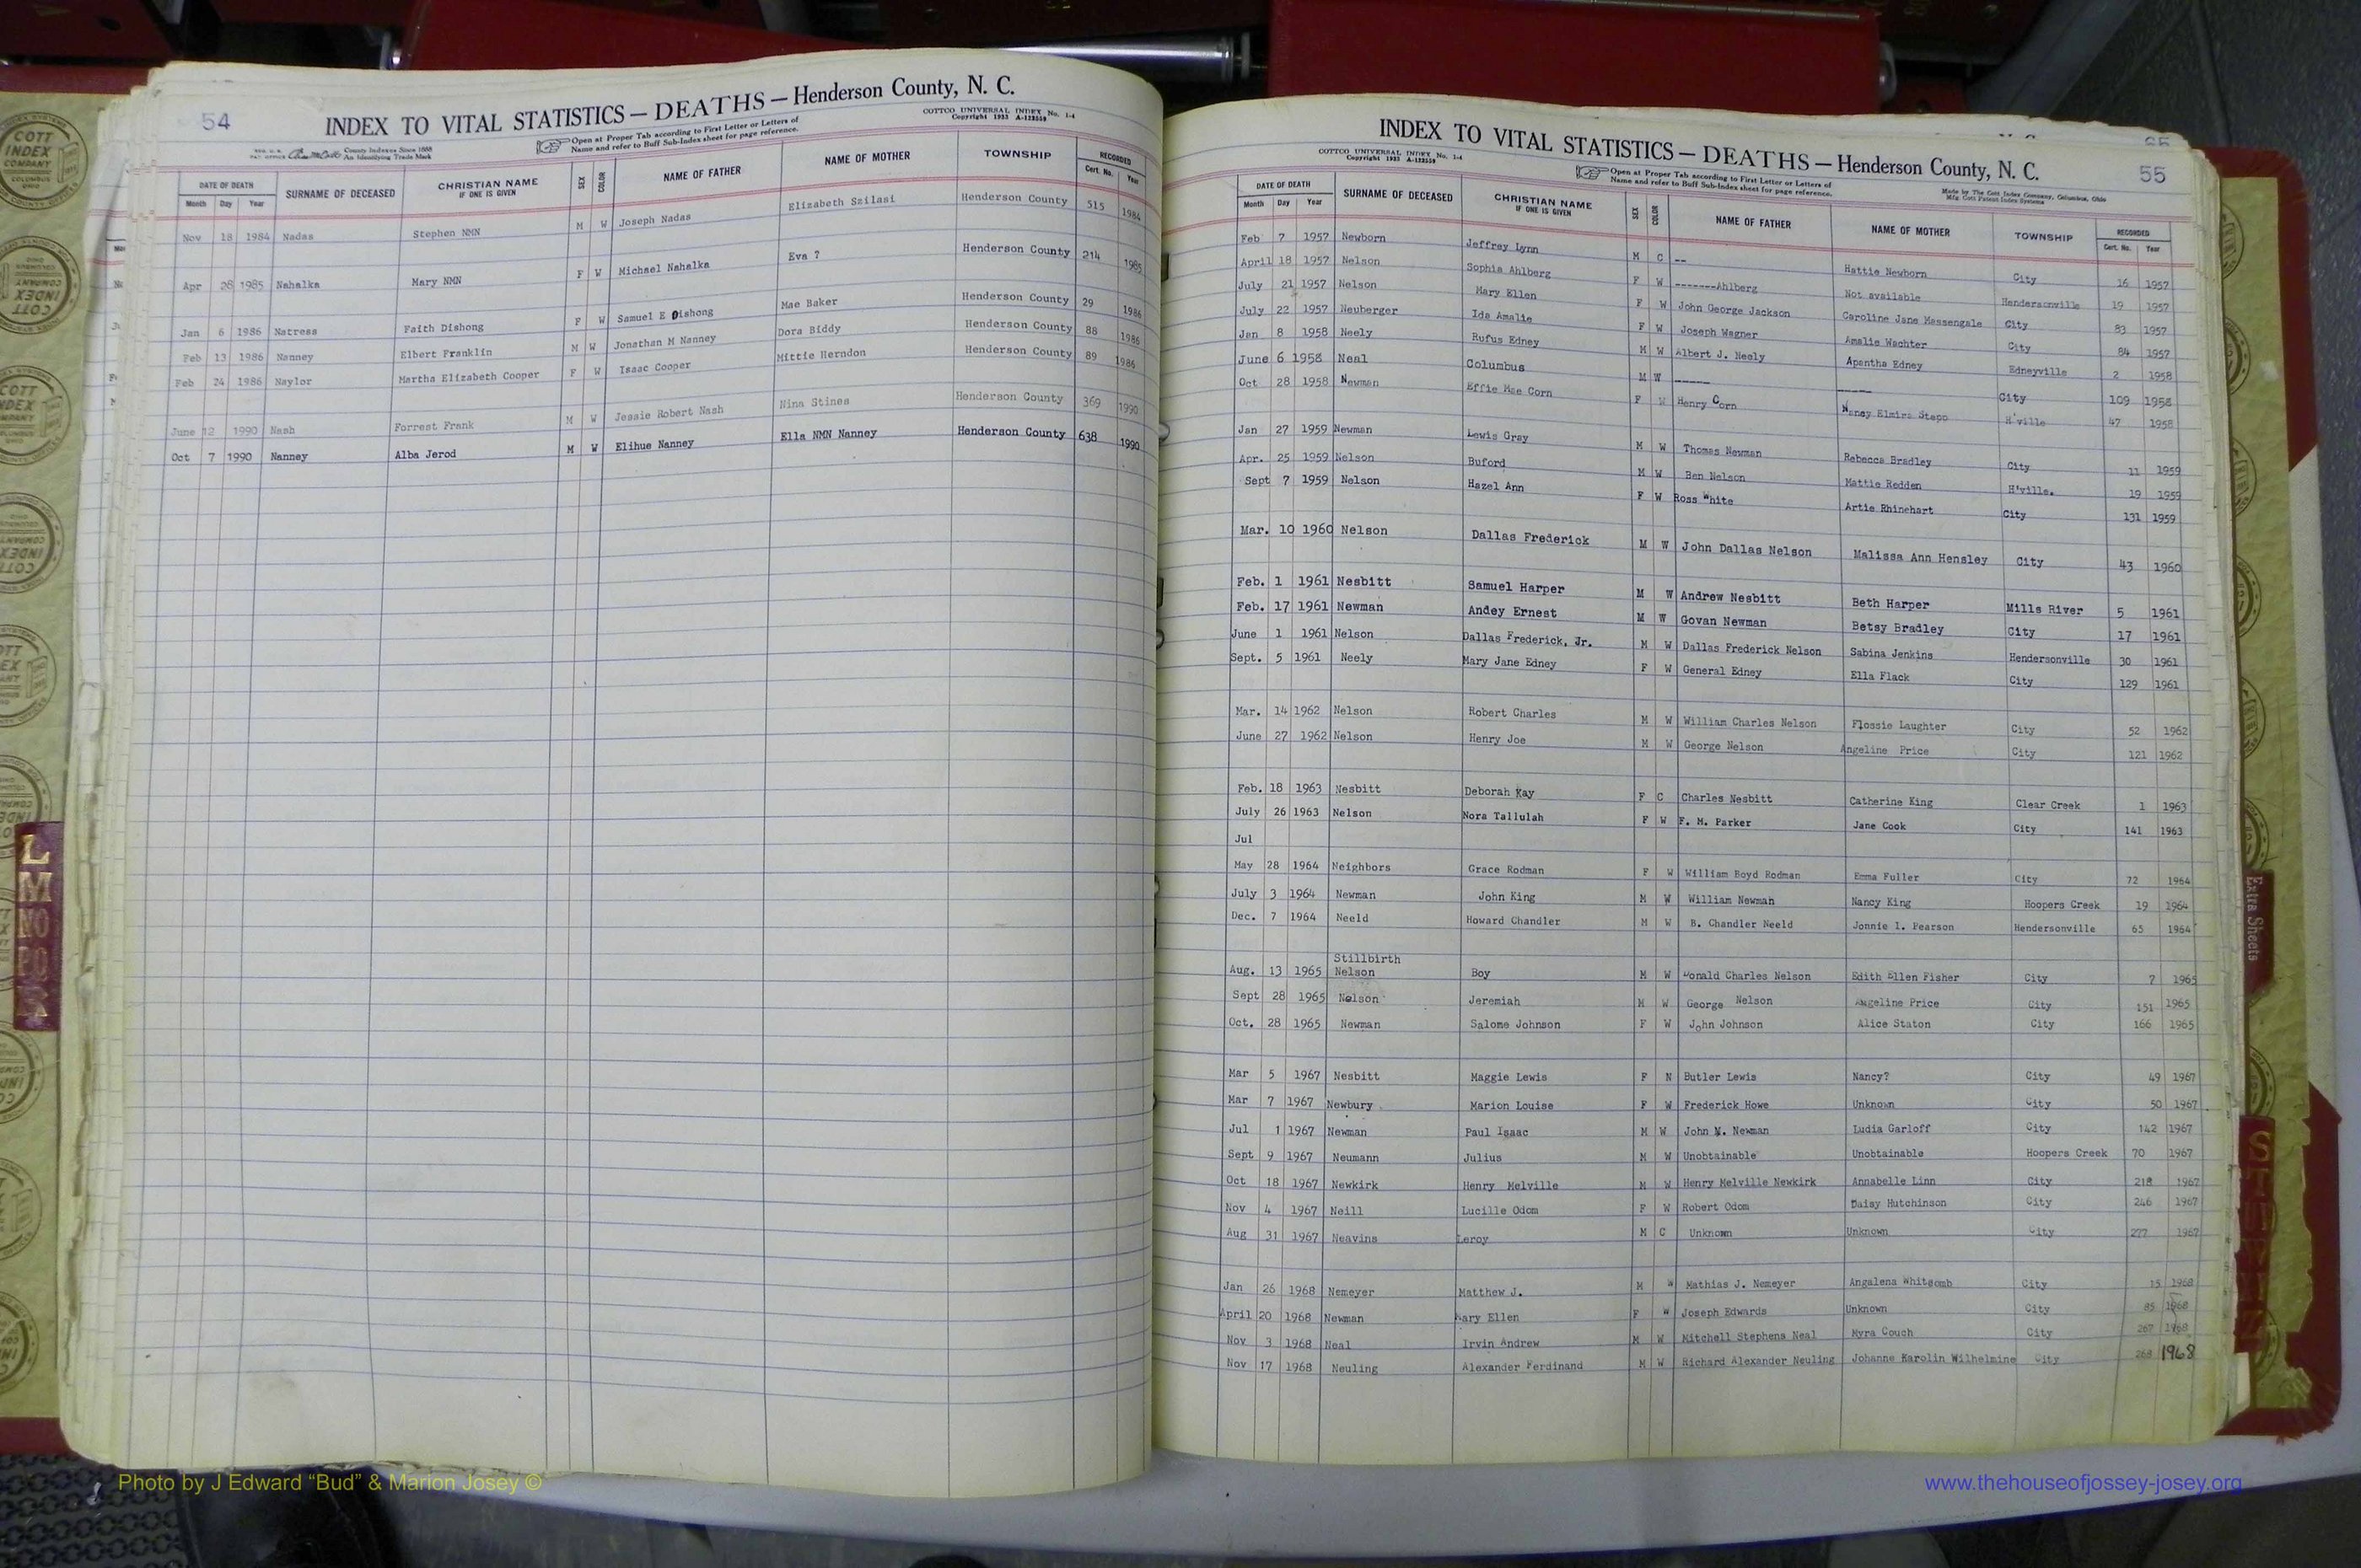 54
INDEX TO VITAL STATISTICS — DEATHS — Henderson County, N. C.
COTTCO UNIVERSAL INDEX No. 1-4
Copyright 1933 A-122358
County Indexes Since 1888
An Identifying Trade Mark
Open at Proper Tab according to First Letter or Letters of
Name and refer to Buff Sub-Index sheet for page reference.
DATE OF DEATH SURNAME OF DECEASED CHRISTIAN NAME IF ONE IS GIVEN SEX COLOR NAME OF FATHER NAME OF MOTHER TOWNSHIP RECORDED
Month Day Year Cert. No. Year
Nov 18 1984 Nadas Stephen NMN M W Joseph Nadas Elizabeth Szilasi Henderson County 515 1984
Apr 28 1985 Nahalka Mary NMN F W Michael Nahalka Eva ? Henderson County 214 1985
Jan 6 1986 Natress Faith Dishong F W Samuel E Dishong Mae Baker Henderson County 29 1986
Feb 13 1986 Nanney Elbert Franklin M W Jonathan M Nanney Dora Biddy Henderson County 88 1986
Feb 24 1986 Naylor Martha Elizabeth Cooper F W Isaac Cooper Mittie Herndon Henderson County 89 1986
June 12 1990 Nash Forrest Frank M W Jessie Robert Nash Nina Stines Henderson County 369 1990
Oct 7 1990 Nanney Alba Jerod M W Elihue Nanney Ella NMN Nanney Henderson County 638 1990
55
INDEX TO VITAL STATISTICS — DEATHS — Henderson County, N. C.
COTTCO UNIVERSAL INDEX No. 1-4
Copyright 1933 A-122358
Open at Proper Tab according to First Letter or Letters of
Name and refer to Buff Sub-Index sheet for page reference.
Made by The Cott Index Company, Columbus, Ohio
Mfg. Cott Patent Index Systems
DATE OF DEATH SURNAME OF DECEASED CHRISTIAN NAME IF ONE IS GIVEN SEX COLOR NAME OF FATHER NAME OF MOTHER TOWNSHIP RECORDED
Month Day Year Cert. No. Year
Feb 7 1957 Newborn Jeffrey Lynn M C -- Hattie Newborn City 16 1957
April 18 1957 Nelson Sophia Ahlberg F W -------Ahlberg Not available Hendersonville 19 1957
July 21 1957 Nelson Mary Ellen F W John George Jackson Caroline Jane Massengale City 83 1957
July 22 1957 Neuberger Ida Amalie F W Joseph Wagner Amalie Wachter City 84 1957
Jan 8 1958 Neely Rufus Edney M W Albert J. Neely Apantha Edney Edneyville 2 1958
June 6 1958 Neal Columbus M W ----- ----- City 109 1958
Oct 28 1958 Newman Effie Mae Corn F W Henry Corn Nancy Elmira Stepo H'ville 47 1958
Jan 27 1959 Newman Lewis Gray M W Thomas Newman Rebecca Bradley City 11 1959
Apr. 25 1959 Nelson Buford M W Ben Nelson Mattie Redden H'ville. 19 1959
Sept 7 1959 Nelson Hazel Ann F W Ross White Artie Rhinehart City 131 1959
Mar. 10 1960 Nelson Dallas Frederick M W John Dallas Nelson Malissa Ann Hensley City 43 1960
Feb. 1 1961 Nesbitt Samuel Harper M W Andrew Nesbitt Beth Harper Mills River 5 1961
Feb. 17 1961 Newman Andey Ernest M W Govan Newman Betsy Bradley City 17 1961
June 1 1961 Nelson Dallas Frederick, Jr. M W Dallas Frederick Nelson Sabina Jenkins Hendersonville 30 1961
Sept. 5 1961 Neely Mary Jane Edney F W General Edney Ella Flack City 129 1961
Mar. 14 1962 Nelson Robert Charles M W William Charles Nelson Flossie Laughter City 52 1962
June 27 1962 Nelson Henry Joe M W George Nelson Angeline Price City 121 1962
Feb. 18 1963 Nesbitt Deborah Kay F C Charles Nesbitt Catherine King Clear Creek 1 1963
July 26 1963 Nelson Nora Tallulah F W F. M. Parker Jane Cook City 141 1963
Jul
May 28 1964 Neighbors Grace Rodman F W William Boyd Rodman Emma Fuller City 72 1964
July 3 1964 Newman John King M W William Newman Nancy King Hoopers Creek 19 1964
Dec. 7 1964 Neeld Howard Chandler M W B. Chandler Neeld Jonnie I. Pearson Hendersonville 65 1964
Stillbirth
Aug. 13 1965 Nelson Boy M W Donald Charles Nelson Edith Ellen Fisher City 7 1965
Sept 28 1965 Nelson Jeremiah M W George Nelson Angeline Price City 151 1965
Oct. 28 1965 Newman Salome Johnson F W John Johnson Alice Staton City 166 1965
Mar 5 1967 Nesbitt Maggie Lewis F N Butler Lewis Nancy? City 49 1967
Mar 7 1967 Newbury Marion Louise F W Frederick Howe Unknown City 50 1967
Jul 1 1967 Newman Paul Isaac M W John Newman Ludia Garloff City 142 1967
Sept 9 1967 Neumann Julius M W Unobtainable Unobtainable Hoopers Creek 70 1967
Oct 18 1967 Newkirk Henry Melville M W Henry Melville Newkirk Annabelle Linn City 218 1967
Nov 4 1967 Neill Lucille Odom F W Robert Odom Daisy Hutchinson City 246 1967
Aug 31 1967 Neavins Leroy M C Unknown Unknown City 277 1967
Jan 26 1968 Nemeyer Matthew J. M W Mathias J. Nemeyer Angalena Whitcomb City 15 1968
April 20 1968 Newman Mary Ellen F W Joseph Edwards Unknown City 85 1968
Nov 3 1968 Neal Irvin Andrew M W Mitchell Stephens Neal Myra Couch City 267 1968
Nov 17 1968 Neuling Alexander Ferdinand M W Richard Alexander Neuling Johanne Karolin Wilhelmine City 268 1968
L
M
NO
Extra Sheets
S
COTT INDEX COMPANY COLUMBUS OHIO
Photo by J Edward “Bud” & Marion Josey ©
www.thehouseofjossey-josey.org